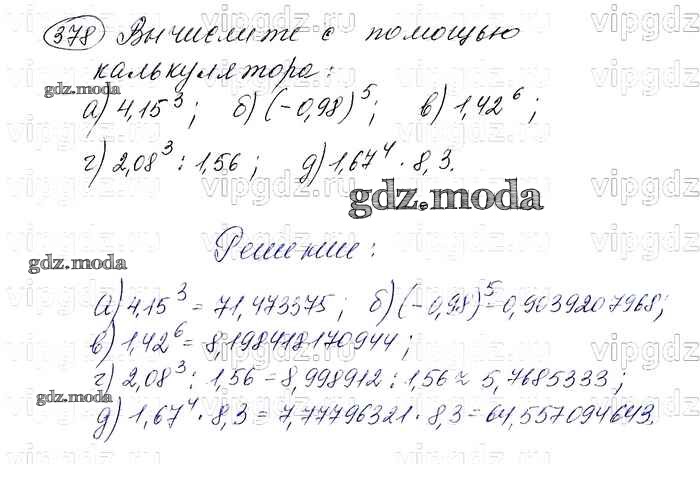 378 Вычислите с помощью
калькулятора:
gdz.moda
а) 4,15³; б) (-0,98)⁵; в) 1,42⁶;
г) 2,08³ : 1,56; д) 1,67⁴ · 8,3.
gdz.moda
Решение:
gdz.moda
а) 4,15³ = 71,473375; б) (-0,98)⁵ -0,9039207968;
в) 1,42⁶ = 8,198418170944;
г) 2,08³ : 1,56 = 8,998912 : 1,56 ≈ 5,7685333;
gdz.moda
д) 1,67⁴ · 8,3 = 7,77796321 · 8,3 = 64,557094643.
vipgdz
vipgdz
vipgdz
vipgdz